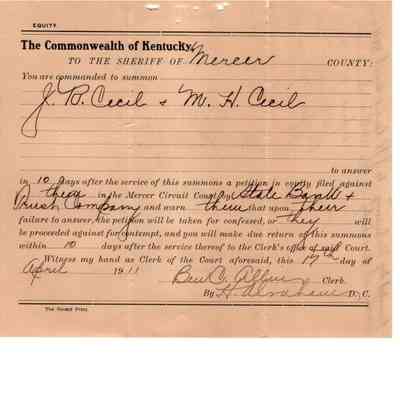 EQUITY.
The Commonwealth of Kentucky,
TO THE SHERIFF OF Mercer COUNTY:
You are commanded to summon
J. B. Cecil & M. H. Cecil
to answer
in 10 days after the service of this summons a petition in equity filed against
them in the Mercer Circuit Court by State Bank &
Trust Company and warn them that upon their
failure to answer, the petition will be taken for confessed, or they will
be proceeded against for contempt, and you will make due return of this summons
within 10 days after the service thereof to the Clerk's office of said Court.
Witness my hand as Clerk of the Court aforesaid, this 17th day of
April 1911 Ben C. Allin Clerk.
By H. D. C.
The Herald Print